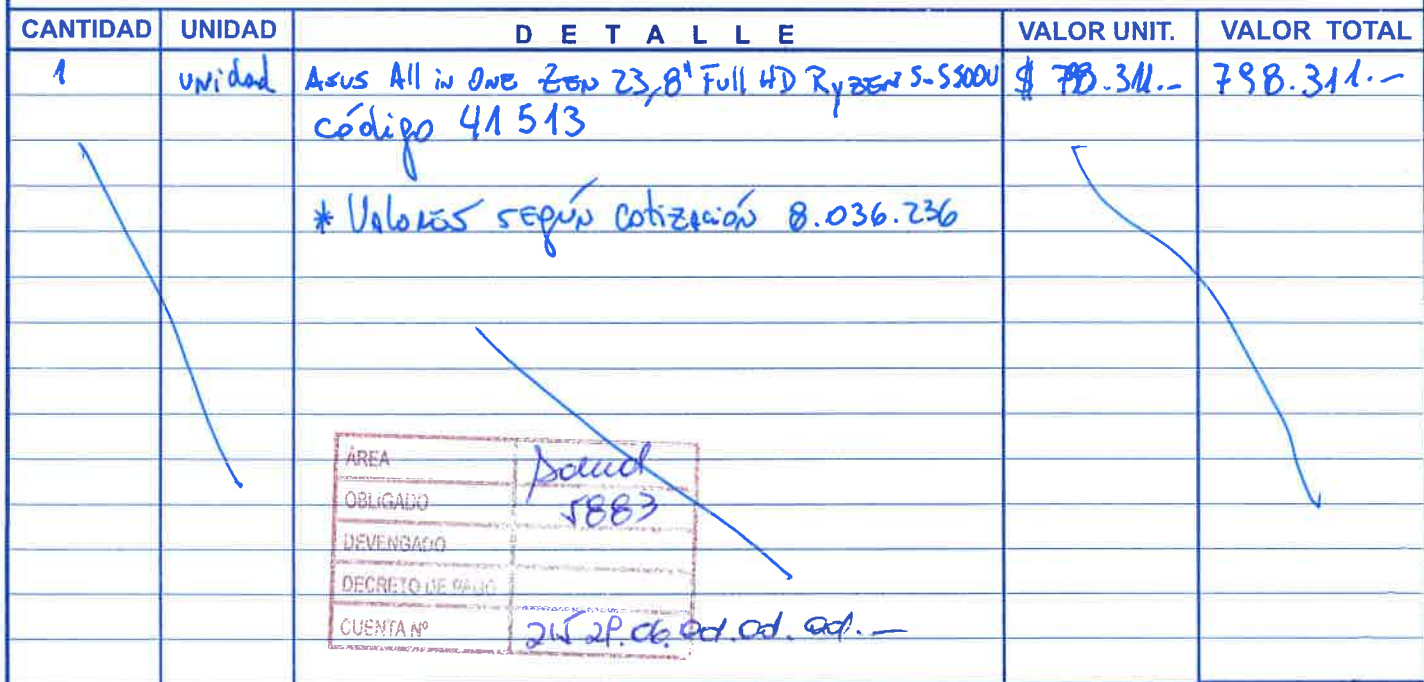 CANTIDAD UNIDAD DETALLE VALOR UNIT. VALOR TOTAL
1 unidad Asus All in One Zen 23,8" Full HD Ryzen 5-5500U $ 798.311.- 798.311.-
código 41513
* Valores según cotización 8.036.236
ÁREA Salud
OBLIGADO 5883
DEVENGADO
DECRETO DE PAGO
CUENTA Nº 215 29.06.